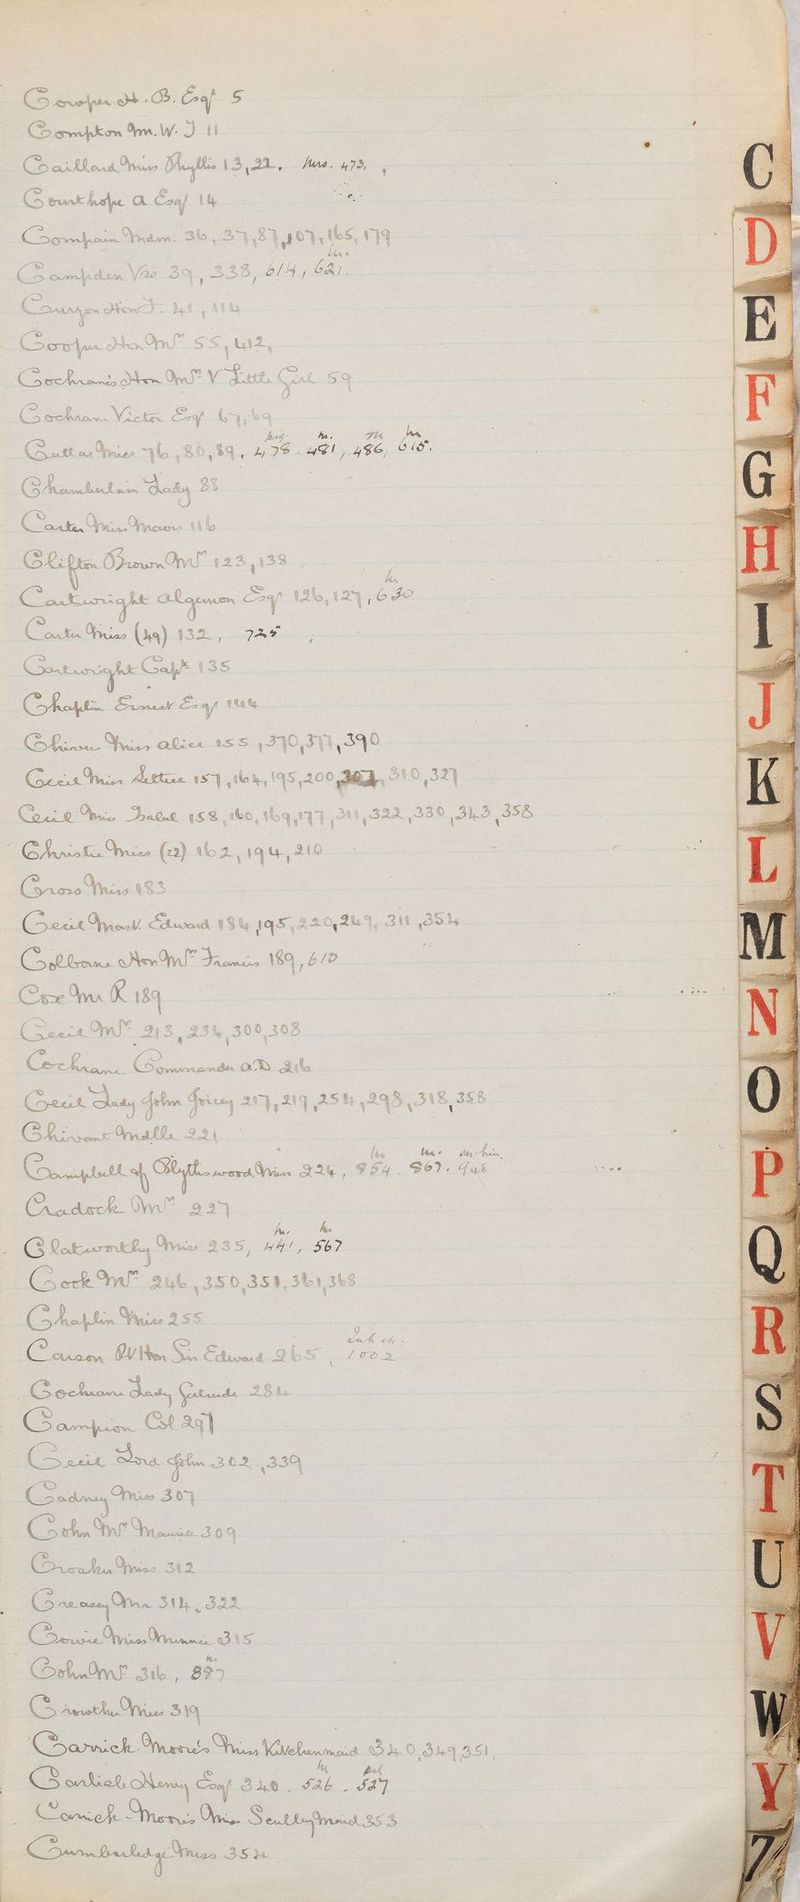 Cowper H. B. Esqr 5
Compton Mr. W. J 11
C
Caillard Miss Phyllis 13, 22. Mrs. 473.
Courthope A Esqr 14
D
Compain Mdm. 36, 37, 87, 107, 165, 179
m.
Campden Vss 39, 338, 614, 621.
E
Curzon Hon F. 41, 114
Cooper Hon Mrs 55, 412,
Cochrane's Hon Mrs V Little Girl 59
F
Cochrane Victor Esqr 67, 69
m. m m
Miss 76, 80, 89, 478. 481, 486, 615.
G
Chamberlain Lady 88
Carter Miss Mavis 116
H
Clifton Brown Mrs 123, 138
m
Cartwright Algernon Esqr 126, 127, 630
I
Carter Miss (49) 132, 725
Cartwright Capt 135
J
Chaplin Ernest Esqr 144
Chivers Miss Alice 155, 370, 377, 390
K
Cecil Miss Lettice 157, 164, 195, 200, 307, 310, 327
Cecil Miss Isabel 158, 160, 169, 177, 311, 322, 330, 343, 358
L
Christie Miss (22) 162, 194, 210
Cross Miss 183
M
Cecil Mast. Edward 184, 195, 220, 249, 311, 354
Colborne Hon Mrs Francis 189, 610
N
Cox Mr R 189
Cecil Mrs 213, 234, 300, 308
Cochrane Commander A.D 216
O
Cecil Lady John Joicey 217, 219, 254, 298, 318, 358
Chivant Mdlle 221
m m. m.
P
Campbell of Blythswood Miss 224, 854. 867. 948
Cradock Mrs 227
m. m.
Q
Clatworthy Miss 235, 441, 567
Cook Mrs 246, 350, 351, 361, 368
R
Chaplin Miss 255
Carson Rt Hon Sir Edward 265, 1002
S
Cochrane Lady Gertrude 284
Campion Col 297
Cecil Lord John 302, 339
T
Cadney Miss 307
Cohn Mrs Maurice 309
U
Croaker Miss 312
Creasey Mr 314, 322
V
Cowie Miss Minnie 315
m.
Cohn Mrs 316, 887
W
Crowther Miss 319
Carrick-Moore's Miss Kitchenmaid 340, 349, 351,
m
Y
Carlisle Henry Esqr 340. 526. 527
Carrick-Moore's Miss Scullery Maid 353
Z
Cumberledge Miss 354